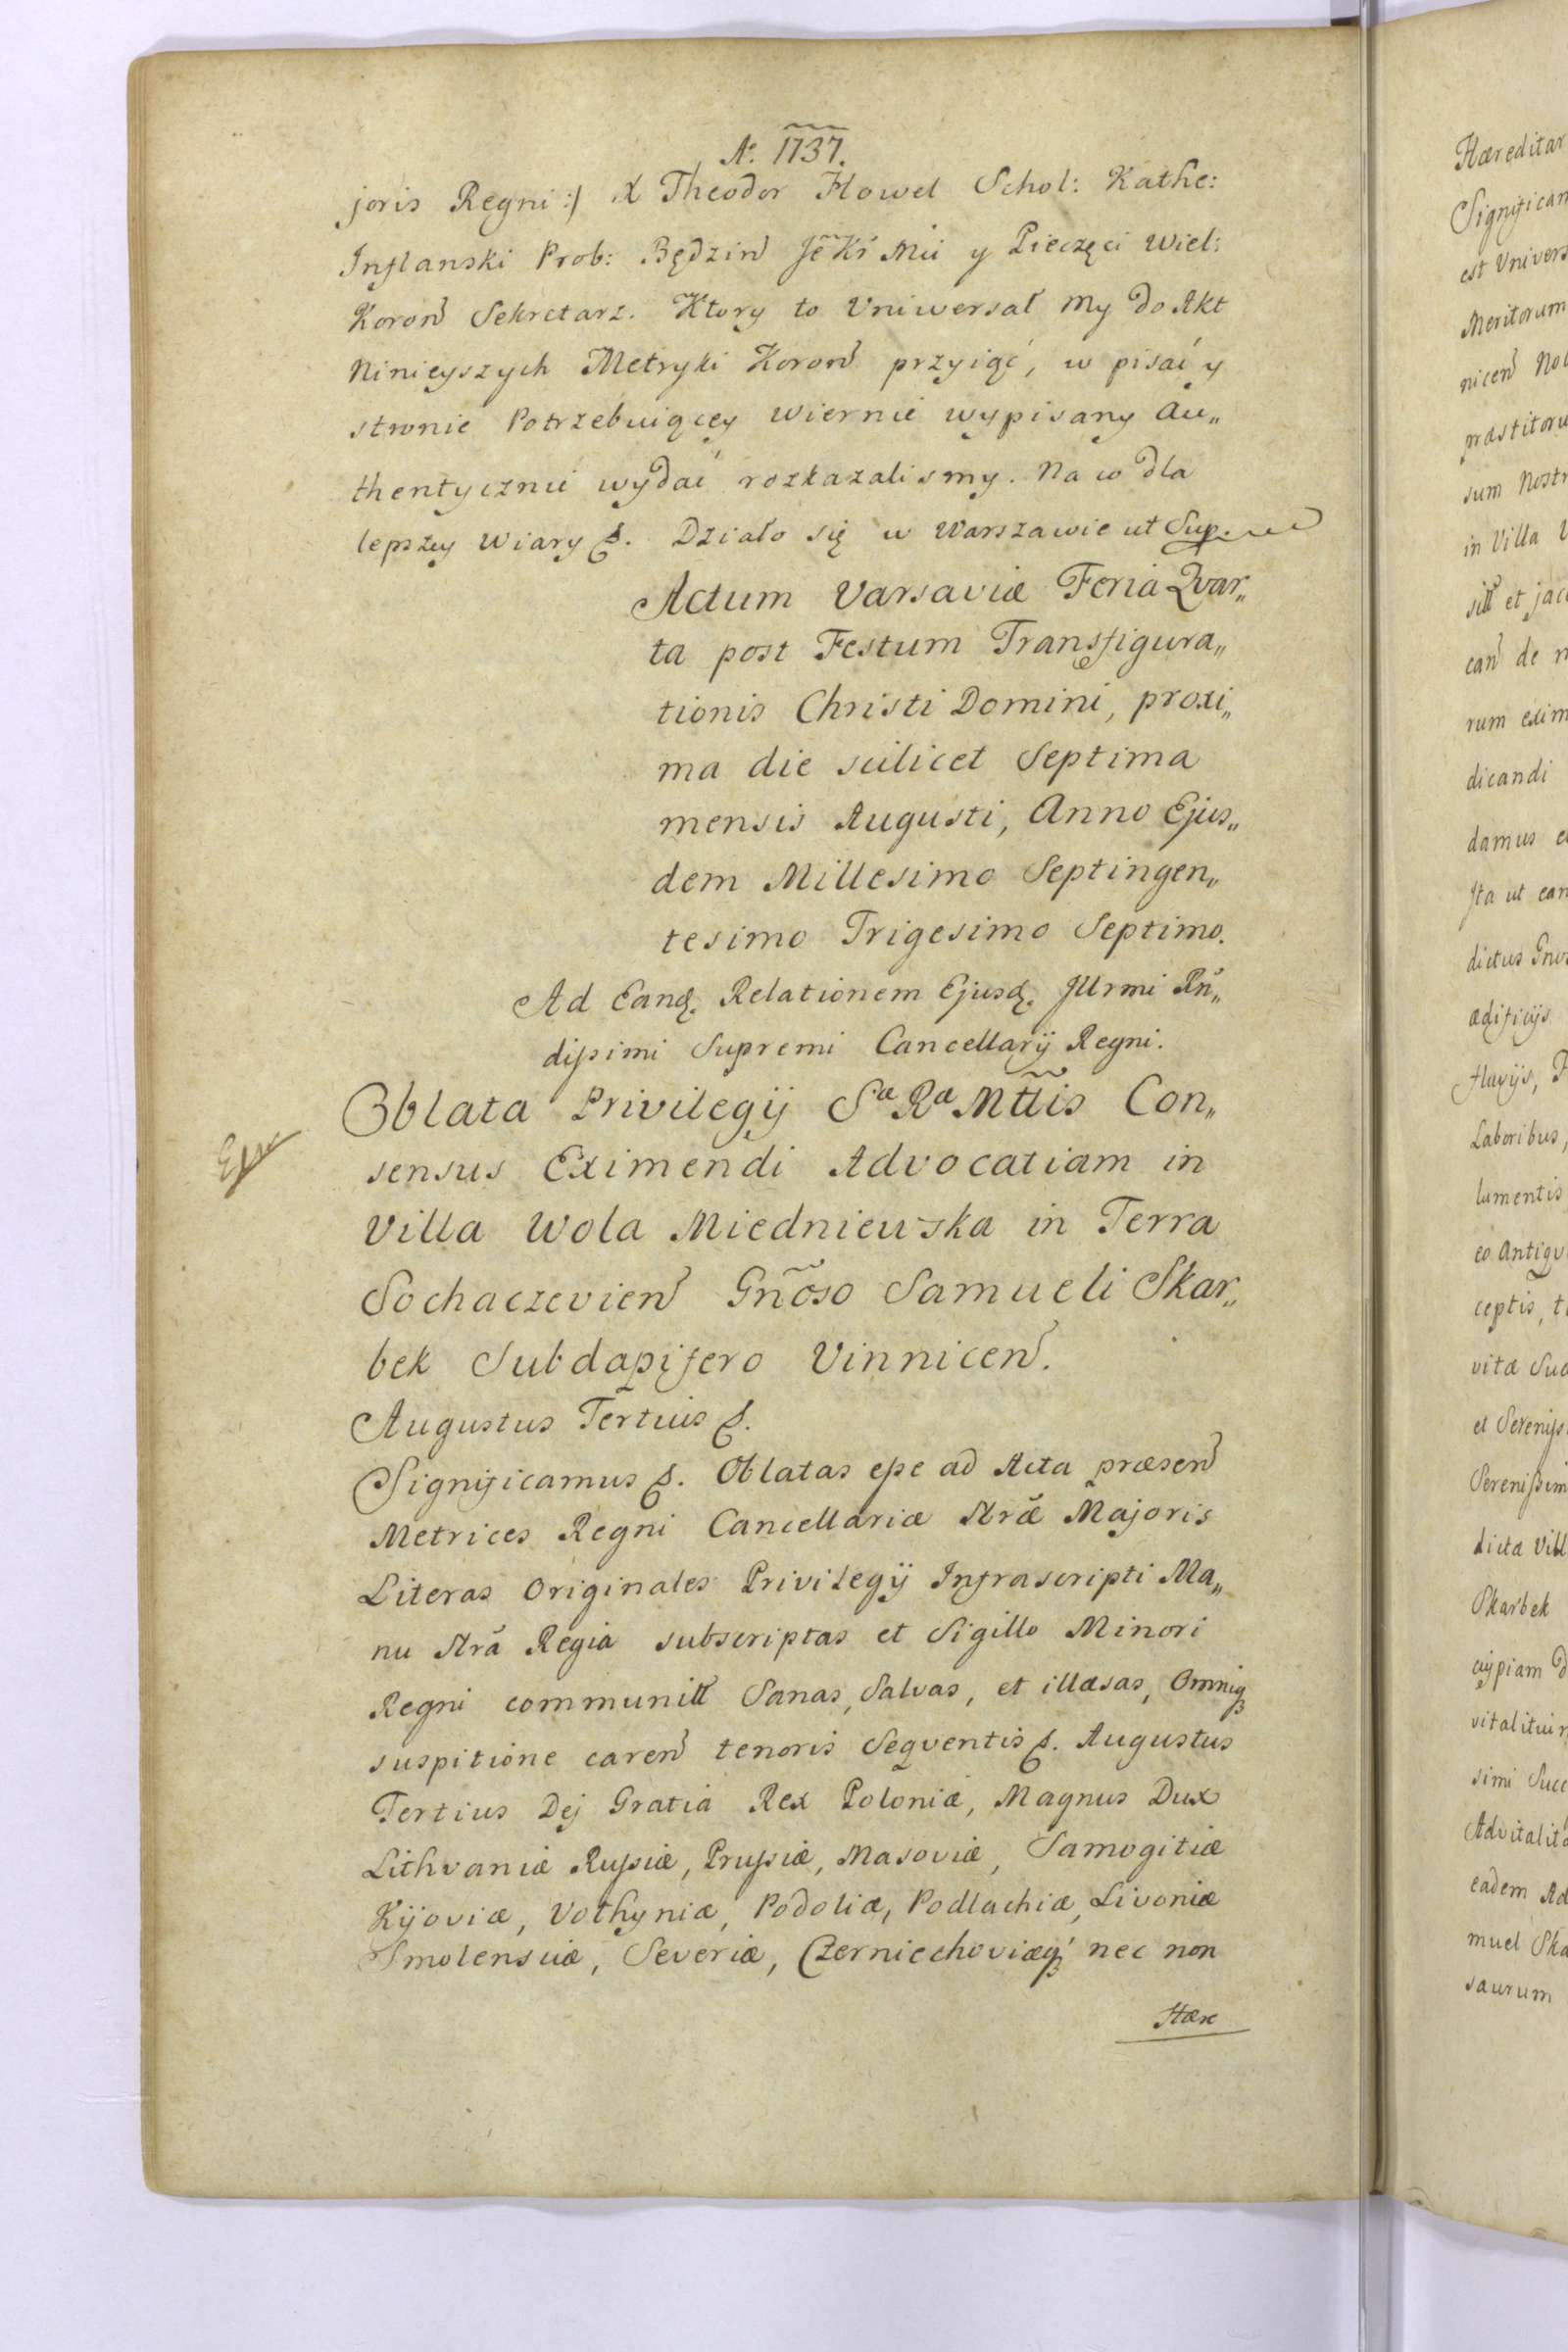 Aͦ. 1737.
joris Regni :/ X Theodor Howel Schol: Kathe:
Inflanski Prob: Będzin JẽKr Mci y Pieczęci Wiel:
Koron Sekretarz. Ktory to Uniwersał My do Akt
Ninieyszych Metryki Koron przyiąć, w pisać y
stronie Potrzebuiącey Wiernie wypisany Au„
thentycznie wydać rozkazalismy. Na co dla
lepszey Wiary &. Działo się w Warszawie ut Sup.
Actum Varsaviæ Feria Qvar„
ta post Festum Transfigura„
tionis Christi Domini, proxi„
ma die scilicet Septima
mensis Augusti, Anno Ejus„
dem Millesimo Septingen„
tesimo Trigesimo Septimo.
Ad Eandq. Relationem Ejusdq. Jllrmi Rñ„
dissimi Supremi Cancellarij Regni.
Oblata Privilegij Sæ Ræ Mttis Con„
sensus Eximendi Advocatiam in
Villa Wola Miedniewska in Terra
Sochaczevien Gnõso Samueli Skar„
bek Subdapifero Vinnicen.
Augustus Tertius &.
Significamus &. Oblatas esse ad Acta præsen
Metrices Regni Cancellariæ Nræ Majoris
Literas Originales Privilegij Infrascripti Ma„
nu Nrã Regia subscriptas et Sigillo Minori
Regni communitt Sanas, Salvas, et illæsas, Omniq
suspitione caren tenoris Seqventis &. Augustus
Tertius Dej Gratia Rex Poloniæ, Magnus Dux
Lithvaniæ Russiæ, Prussiæ, Masoviæ, Samogitiæ
Kijoviæ, Volhyniæ, Podoliæ, Podlachiæ, Livoniæ
Smolensciæ, Severiæ, Czerniechoviæq nec non
Hære
Hæreditar
Significam
est Univers
Meritorum
nicen Nob
præstitoru
sum Nostr
in Villa
sitt et jac
can de
rum exim
dicandi
damus
Jta ut ean
dictus Gnos
ædificijs
flavijs,
Laboribus,
lumentis
eo Antiqv
ceptis,
vitæ Suæ
et Sereniss
Serenissim
dicta Vill
Skarbek
cujpiam
vitalitiu
simi Succ
Advitalita
eadem Ad
muel Ska
saurum